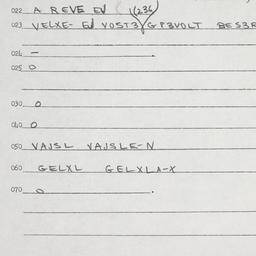 022 A REVE EV (236)
023 VELXE- EV VOST3YGP3VOLT BES3R
024 —
025 O
030 O
040 O
050 VAJSL VAJSLE-N
060 GELXL GELXLA-X
070 O .